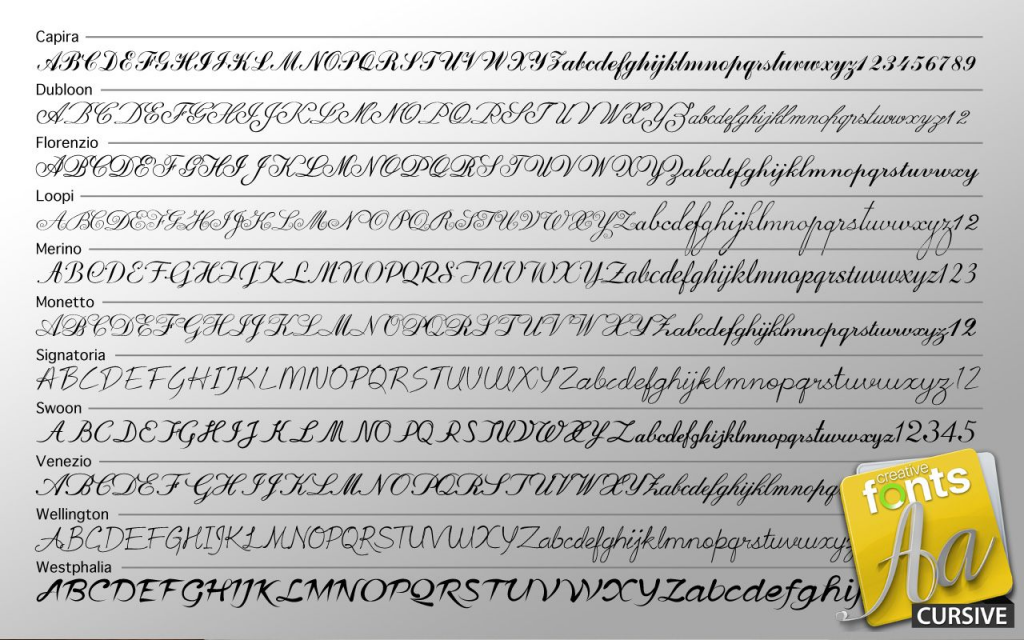 Capira
ABCDEFGHIJKLMNOPQRSTUVWXYZabcdefghijklmnopqrstuvwxyz123456789
Dubloon
ABCDEFGHIJKLMNOPQRSTUVWXYZabcdefghijklmnopqrstuvwxyz12
Florenzio
ABCDEFGHIJKLMNOPQRSTUVWXYZabcdefghijklmnopqrstuvwxy
Loopi
ABCDEFGHIJKLMNOPQRSTUVWXYZabcdefghijklmnopqrstuvwxyz12
Merino
ABCDEFGHIJKLMNOPQRSTUVWXYZabcdefghijklmnopqrstuvwxyz123
Monetto
ABCDEFGHIJKLMNOPQRSTUVWXYZabcdefghijklmnopqrstuvwxyz12
Signatoria
ABCDEFGHIJKLMNOPQRSTUVWXYZabcdefghijklmnopqrstuvwxyz12
Swoon
ABCDEFGHIJKLMNOPQRSTUVWXYZabcdefghijklmnopqrstuvwxyz12345
Venezio
ABCDEFGHIJKLMNOPQRSTUVWXYZabcdefghijklmnopq
Wellington
ABCDEFGHIJKLMNOPQRSTUVWXYZabcdefghijklmnopqrstuvwxyz
Westphalia
ABCDEFGHIJKLMNOPQRSTUVWXYZabcdefghij
creative
fonts
Aa
CURSIVE